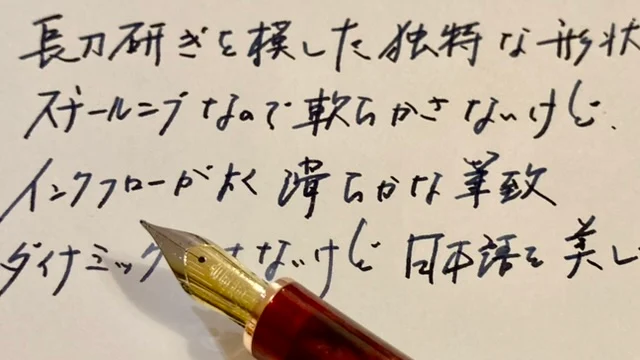 長刀研ぎを模した独特な形状
スチールニブなので軟らかさないけど、
インクフローが良く滑らかな筆致
ダイナミック さないけど 日本語を美し